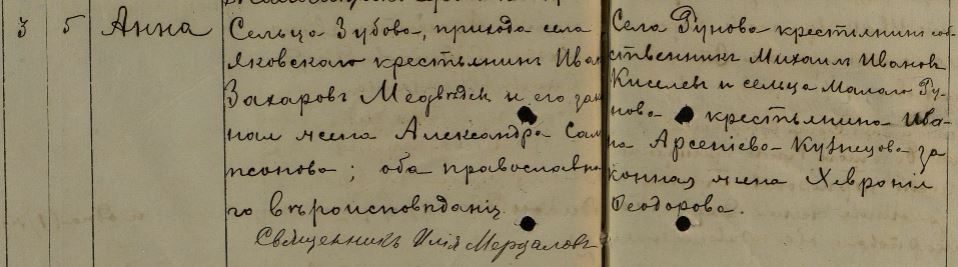 3 5 Анна
Сельца Зубова, прихода села
Яковскаго крестьянинъ Иван
Захаровъ Медвѣдевъ и его закон
ная жена Александра Сам
псонова; оба православна
го вѣроисповѣданія
Священникъ Илія Мерцаловъ
Села Рунова крестьянинъ соб-
ственникъ Михаилъ Ивановъ
Киселевъ и сельца Малаго Ру-
нова крестьянина Ива-
на Арсеніева Кузнецова за
конная жена Хевронія
Ѳеодорова.